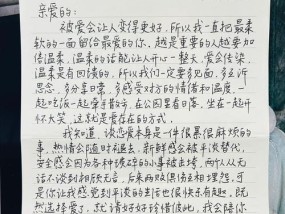 亲爱的:
被爱会让人变得更好,所以我一直把最柔
软的一面留给最爱的你,越是重要的人越要加
倍温柔,温柔的话能让人开心一整天,爱会传染,
温柔是有回馈的,所以我们一定要多面,多
思念,多分享日常,多感受对方的情绪和温度,一
起吃饭一起牵手散步,在公园里看日落,坐在一起开
怀大笑,这就是爱存在的方式。
我知道,谈恋爱本身是一件很累很麻烦的
事,热情会随时褪去,新鲜感会被平淡替代,
安全感会因为各种琐碎的小事被击垮,两个人从无
话不谈到相顾无言,后来两败俱伤互相埋怨,可
是你让我感觉到平淡的生活也很快乐有趣,既
然选择爱了,就请好好珍惜彼此,我会陪